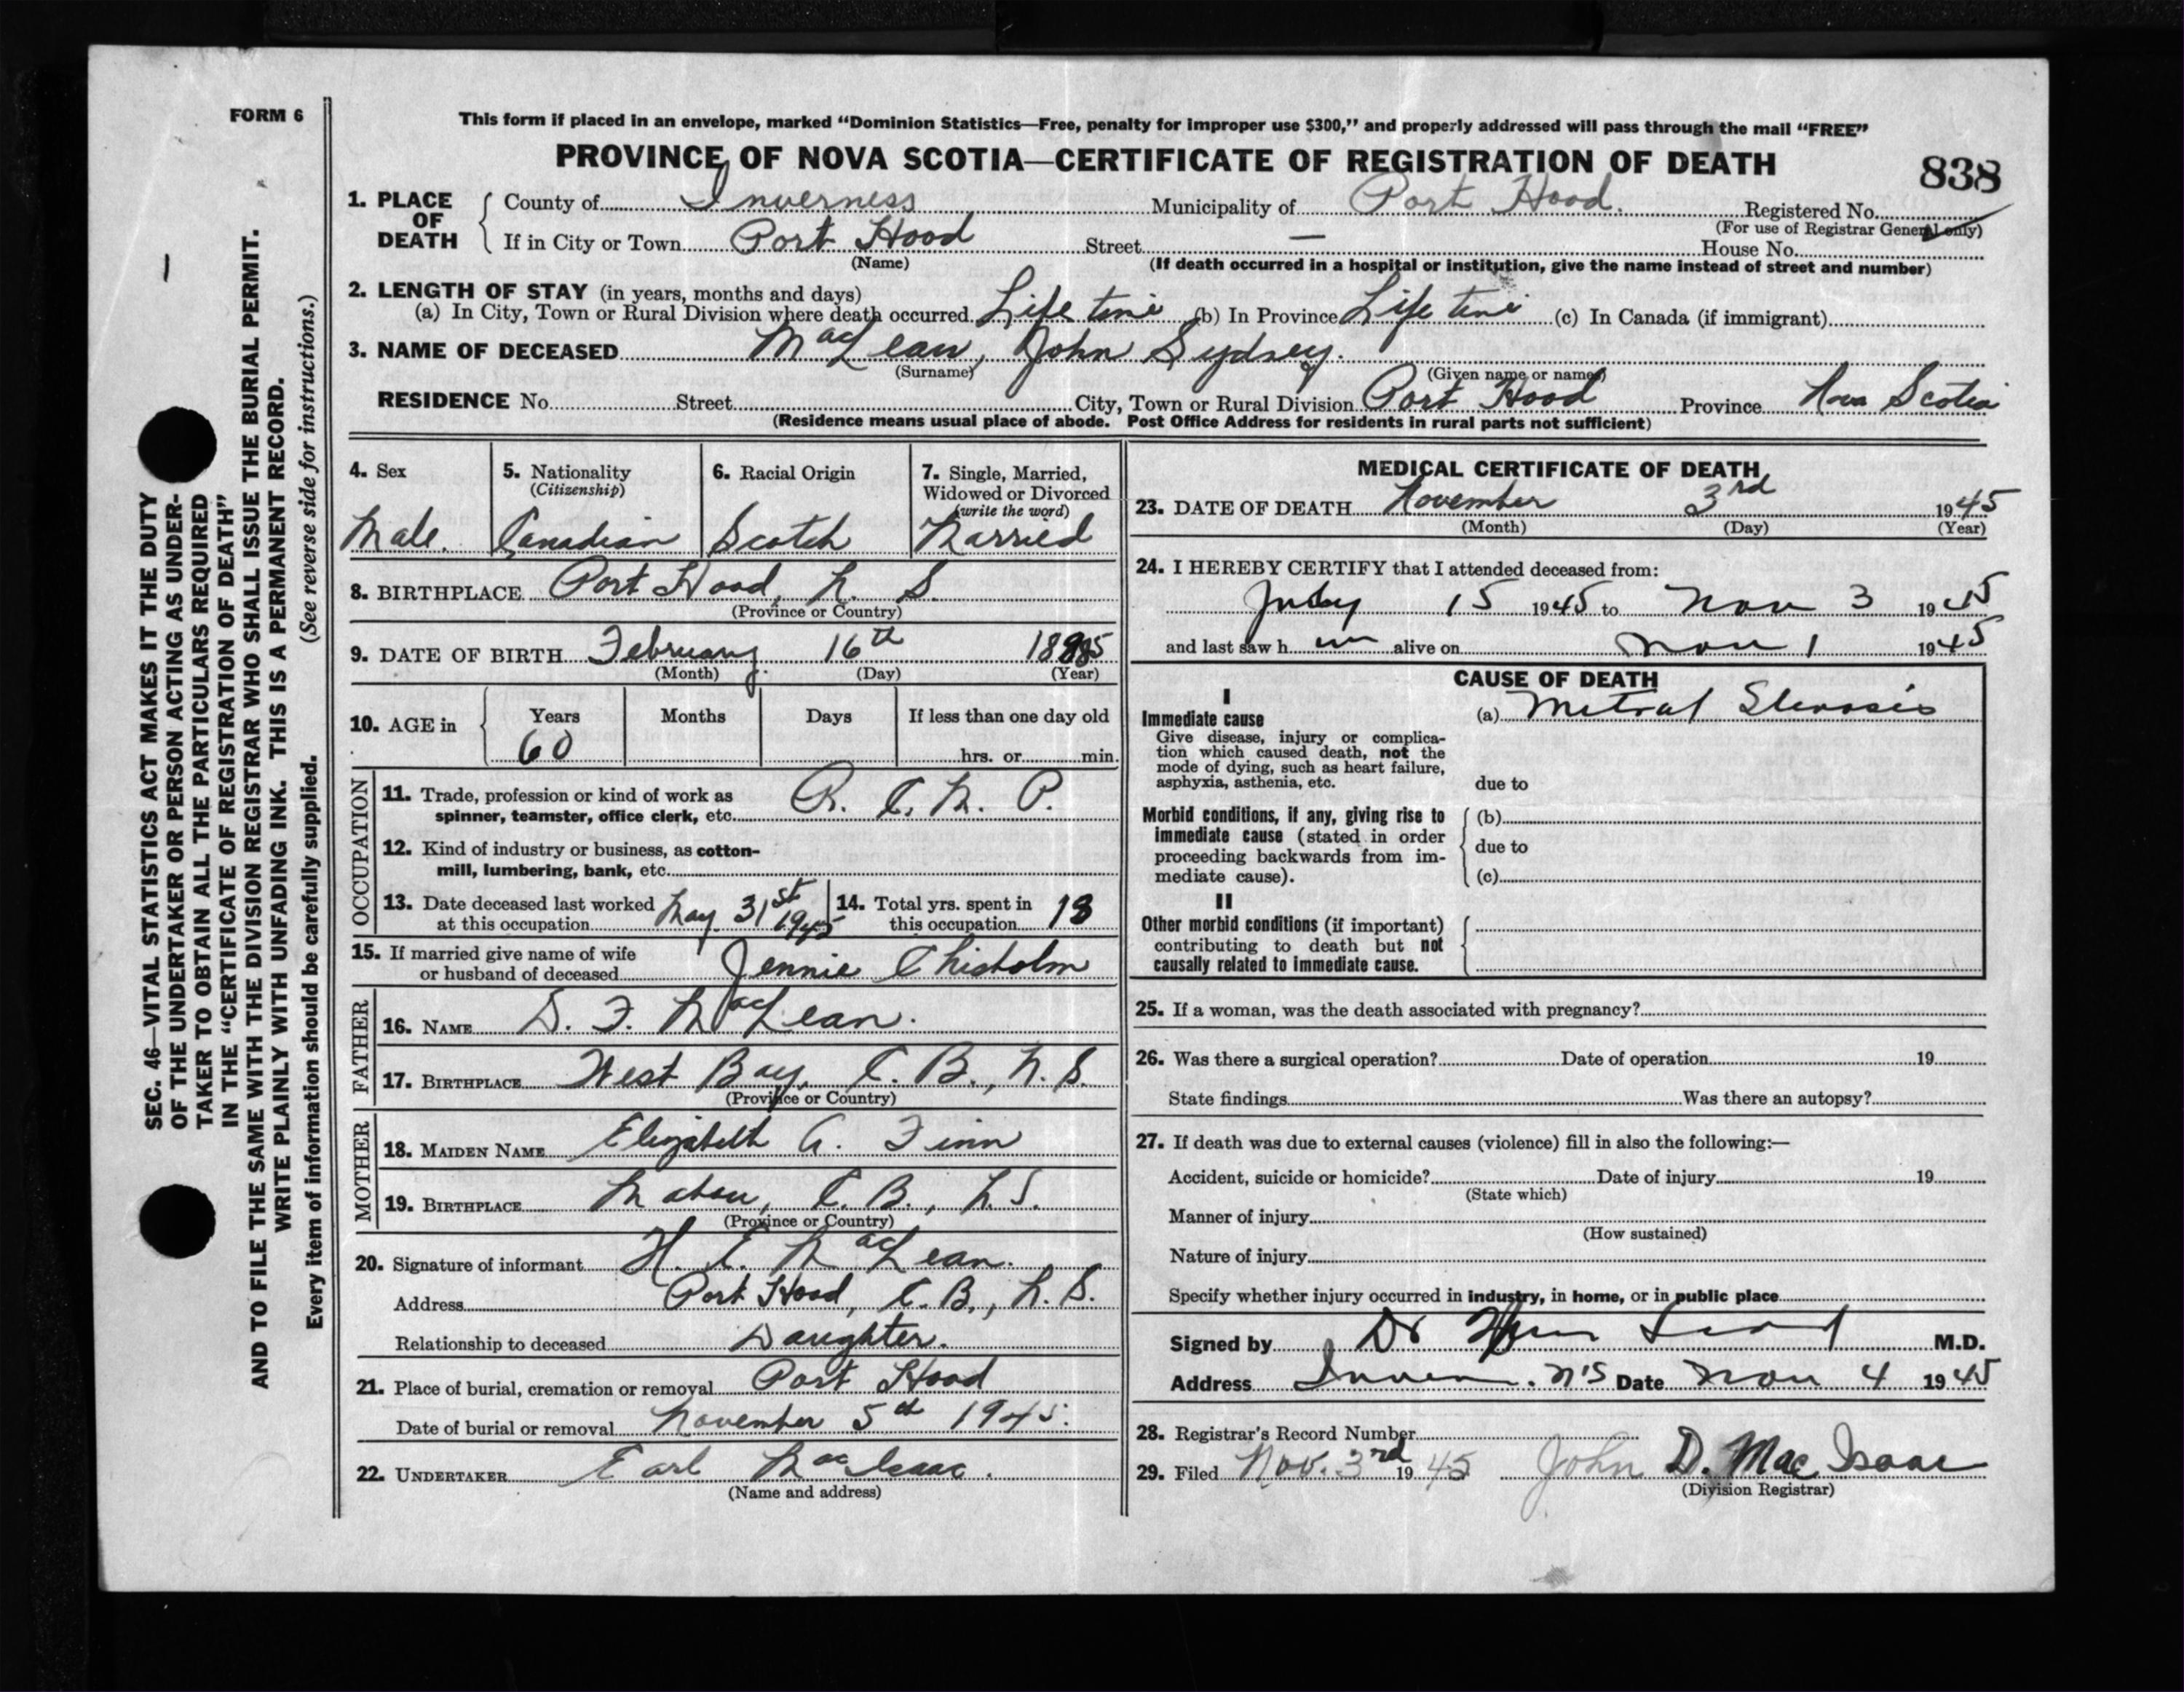 FORM 6
This form if placed in an envelope, marked “Dominion Statistics—Free, penalty for improper use $300,” and properly addressed will pass through the mail “FREE”
PROVINCE OF NOVA SCOTIA—CERTIFICATE OF REGISTRATION OF DEATH
838
1. PLACE OF DEATH
County of Inverness Municipality of Port Hood. Registered No.
(For use of Registrar General only)
If in City or Town Port Hood Street — House No.
(Name)
(If death occurred in a hospital or institution, give the name instead of street and number)
2. LENGTH OF STAY (in years, months and days)
(a) In City, Town or Rural Division where death occurred Life time (b) In Province Life time (c) In Canada (if immigrant)
3. NAME OF DECEASED MacLean, John Sydney.
(Surname) (Given name or names)
RESIDENCE No. Street City, Town or Rural Division Port Hood Province Nova Scotia
(Residence means usual place of abode. Post Office Address for residents in rural parts not sufficient)
4. Sex
Male.
5. Nationality
(Citizenship)
Canadian
6. Racial Origin
Scotch
7. Single, Married,
Widowed or Divorced
(write the word)
Married
8. BIRTHPLACE Port Hood, N. S.
(Province or Country)
9. DATE OF BIRTH February 16th 1885
(Month) (Day) (Year)
10. AGE in Years Months Days If less than one day old
60 hrs. or min.
OCCUPATION
11. Trade, profession or kind of work as
spinner, teamster, office clerk, etc. R. C. M. P.
12. Kind of industry or business, as cotton-
mill, lumbering, bank, etc.
13. Date deceased last worked
at this occupation May 31st 1945
14. Total yrs. spent in
this occupation 13
15. If married give name of wife
or husband of deceased Jennie Chisholm
FATHER
16. NAME D. F. MacLean.
17. BIRTHPLACE West Bay, C. B., N. S.
(Province or Country)
MOTHER
18. MAIDEN NAME Elizabeth A. Finn
19. BIRTHPLACE Mabou, C. B., N. S.
(Province or Country)
20. Signature of informant H. E. MacLean.
Address Port Hood, C. B., N. S.
Relationship to deceased Daughter.
21. Place of burial, cremation or removal Port Hood
Date of burial or removal November 5th 1945.
22. UNDERTAKER Earl MacIsaac.
(Name and address)
MEDICAL CERTIFICATE OF DEATH
23. DATE OF DEATH November 3rd 1945
(Month) (Day) (Year)
24. I HEREBY CERTIFY that I attended deceased from:
July 15 1945 to Nov 3 1945
and last saw h im alive on Nov 1 1945
CAUSE OF DEATH
I
Immediate cause
Give disease, injury or complica-
tion which caused death, not the
mode of dying, such as heart failure,
asphyxia, asthenia, etc.
(a) Mitral Stenosis
due to
Morbid conditions, if any, giving rise to
immediate cause (stated in order
proceeding backwards from im-
mediate cause).
(b)
due to
(c)
II
Other morbid conditions (if important)
contributing to death but not
causally related to immediate cause.
25. If a woman, was the death associated with pregnancy?
26. Was there a surgical operation? Date of operation 19
State findings Was there an autopsy?
27. If death was due to external causes (violence) fill in also the following:—
Accident, suicide or homicide? Date of injury 19
(State which)
Manner of injury
(How sustained)
Nature of injury
Specify whether injury occurred in industry, in home, or in public place
Signed by Dr M.D.
Address N.S Date Nov 4 1945
28. Registrar's Record Number
29. Filed Nov. 3rd 1945 John D. Mac Isaac
(Division Registrar)
SEC. 46—VITAL STATISTICS ACT MAKES IT THE DUTY
OF THE UNDERTAKER OR PERSON ACTING AS UNDER-
TAKER TO OBTAIN ALL THE PARTICULARS REQUIRED
IN THE “CERTIFICATE OF REGISTRATION OF DEATH”
AND TO FILE THE SAME WITH THE DIVISION REGISTRAR WHO SHALL ISSUE THE BURIAL PERMIT.
WRITE PLAINLY WITH UNFADING INK. THIS IS A PERMANENT RECORD.
Every item of information should be carefully supplied. (See reverse side for instructions.)